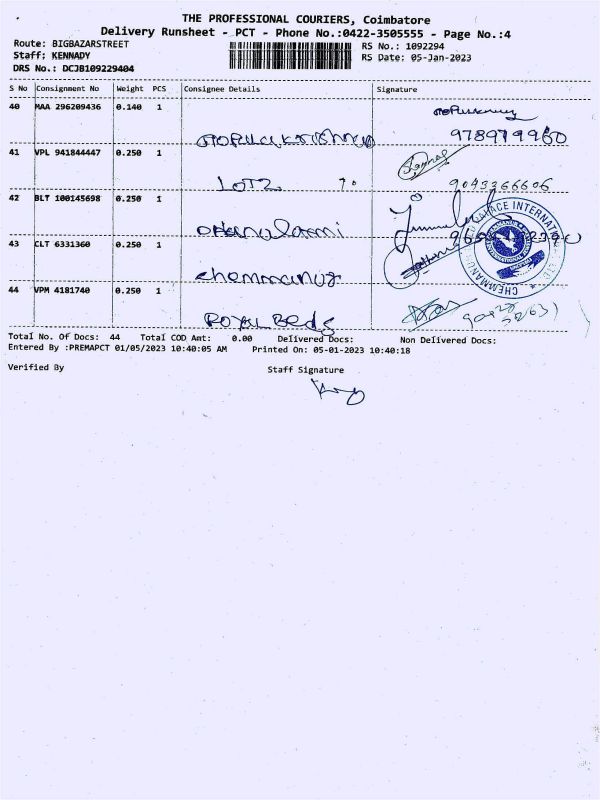 THE PROFESSIONAL COURIERS, Coimbatore
Delivery Runsheet - PCT - Phone No.:0422-3505555 - Page No.:4
Route: BIGBAZARSTREET
RS No.: 1092294
Staff: KENNADY
RS Date: 05-Jan-2023
DRS No.: DCJB109229404
S No Consignment No Weight PCS Consignee Details Signature
40 MAA 296209436 0.140 1
GOPALAKRISHNAN
41 VPL 941844447 0.250 1
LOTZ 9043366606
42 BLT 100145698 0.250 1
Dhanulaxmi
43 CLT 6331360 0.250 1
Chemmanur
44 VPM 4181740 0.250 1
Royal Beds
Total No. Of Docs: 44 Total COD Amt: 0.00 Delivered Docs: Non Delivered Docs:
Entered By :PREMAPCT 01/05/2023 10:40:05 AM Printed On: 05-01-2023 10:40:18
Verified By Staff Signature